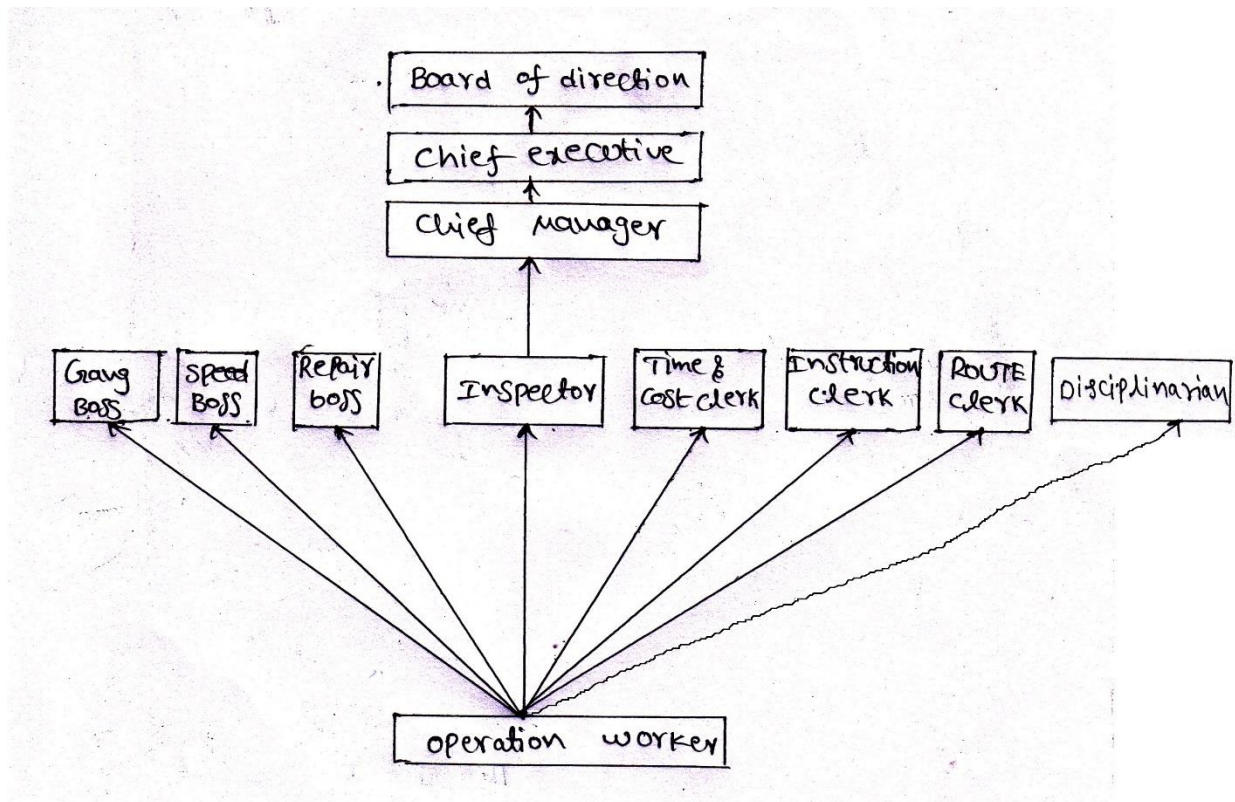 Board of direction
Chief executive
Chief Manager
Gang
Boss
Speed
Boss
Repair
boss
Inspector
Time &
Cost clerk
Instruction
clerk
ROUTE
clerk
Disciplinarian
operation worker